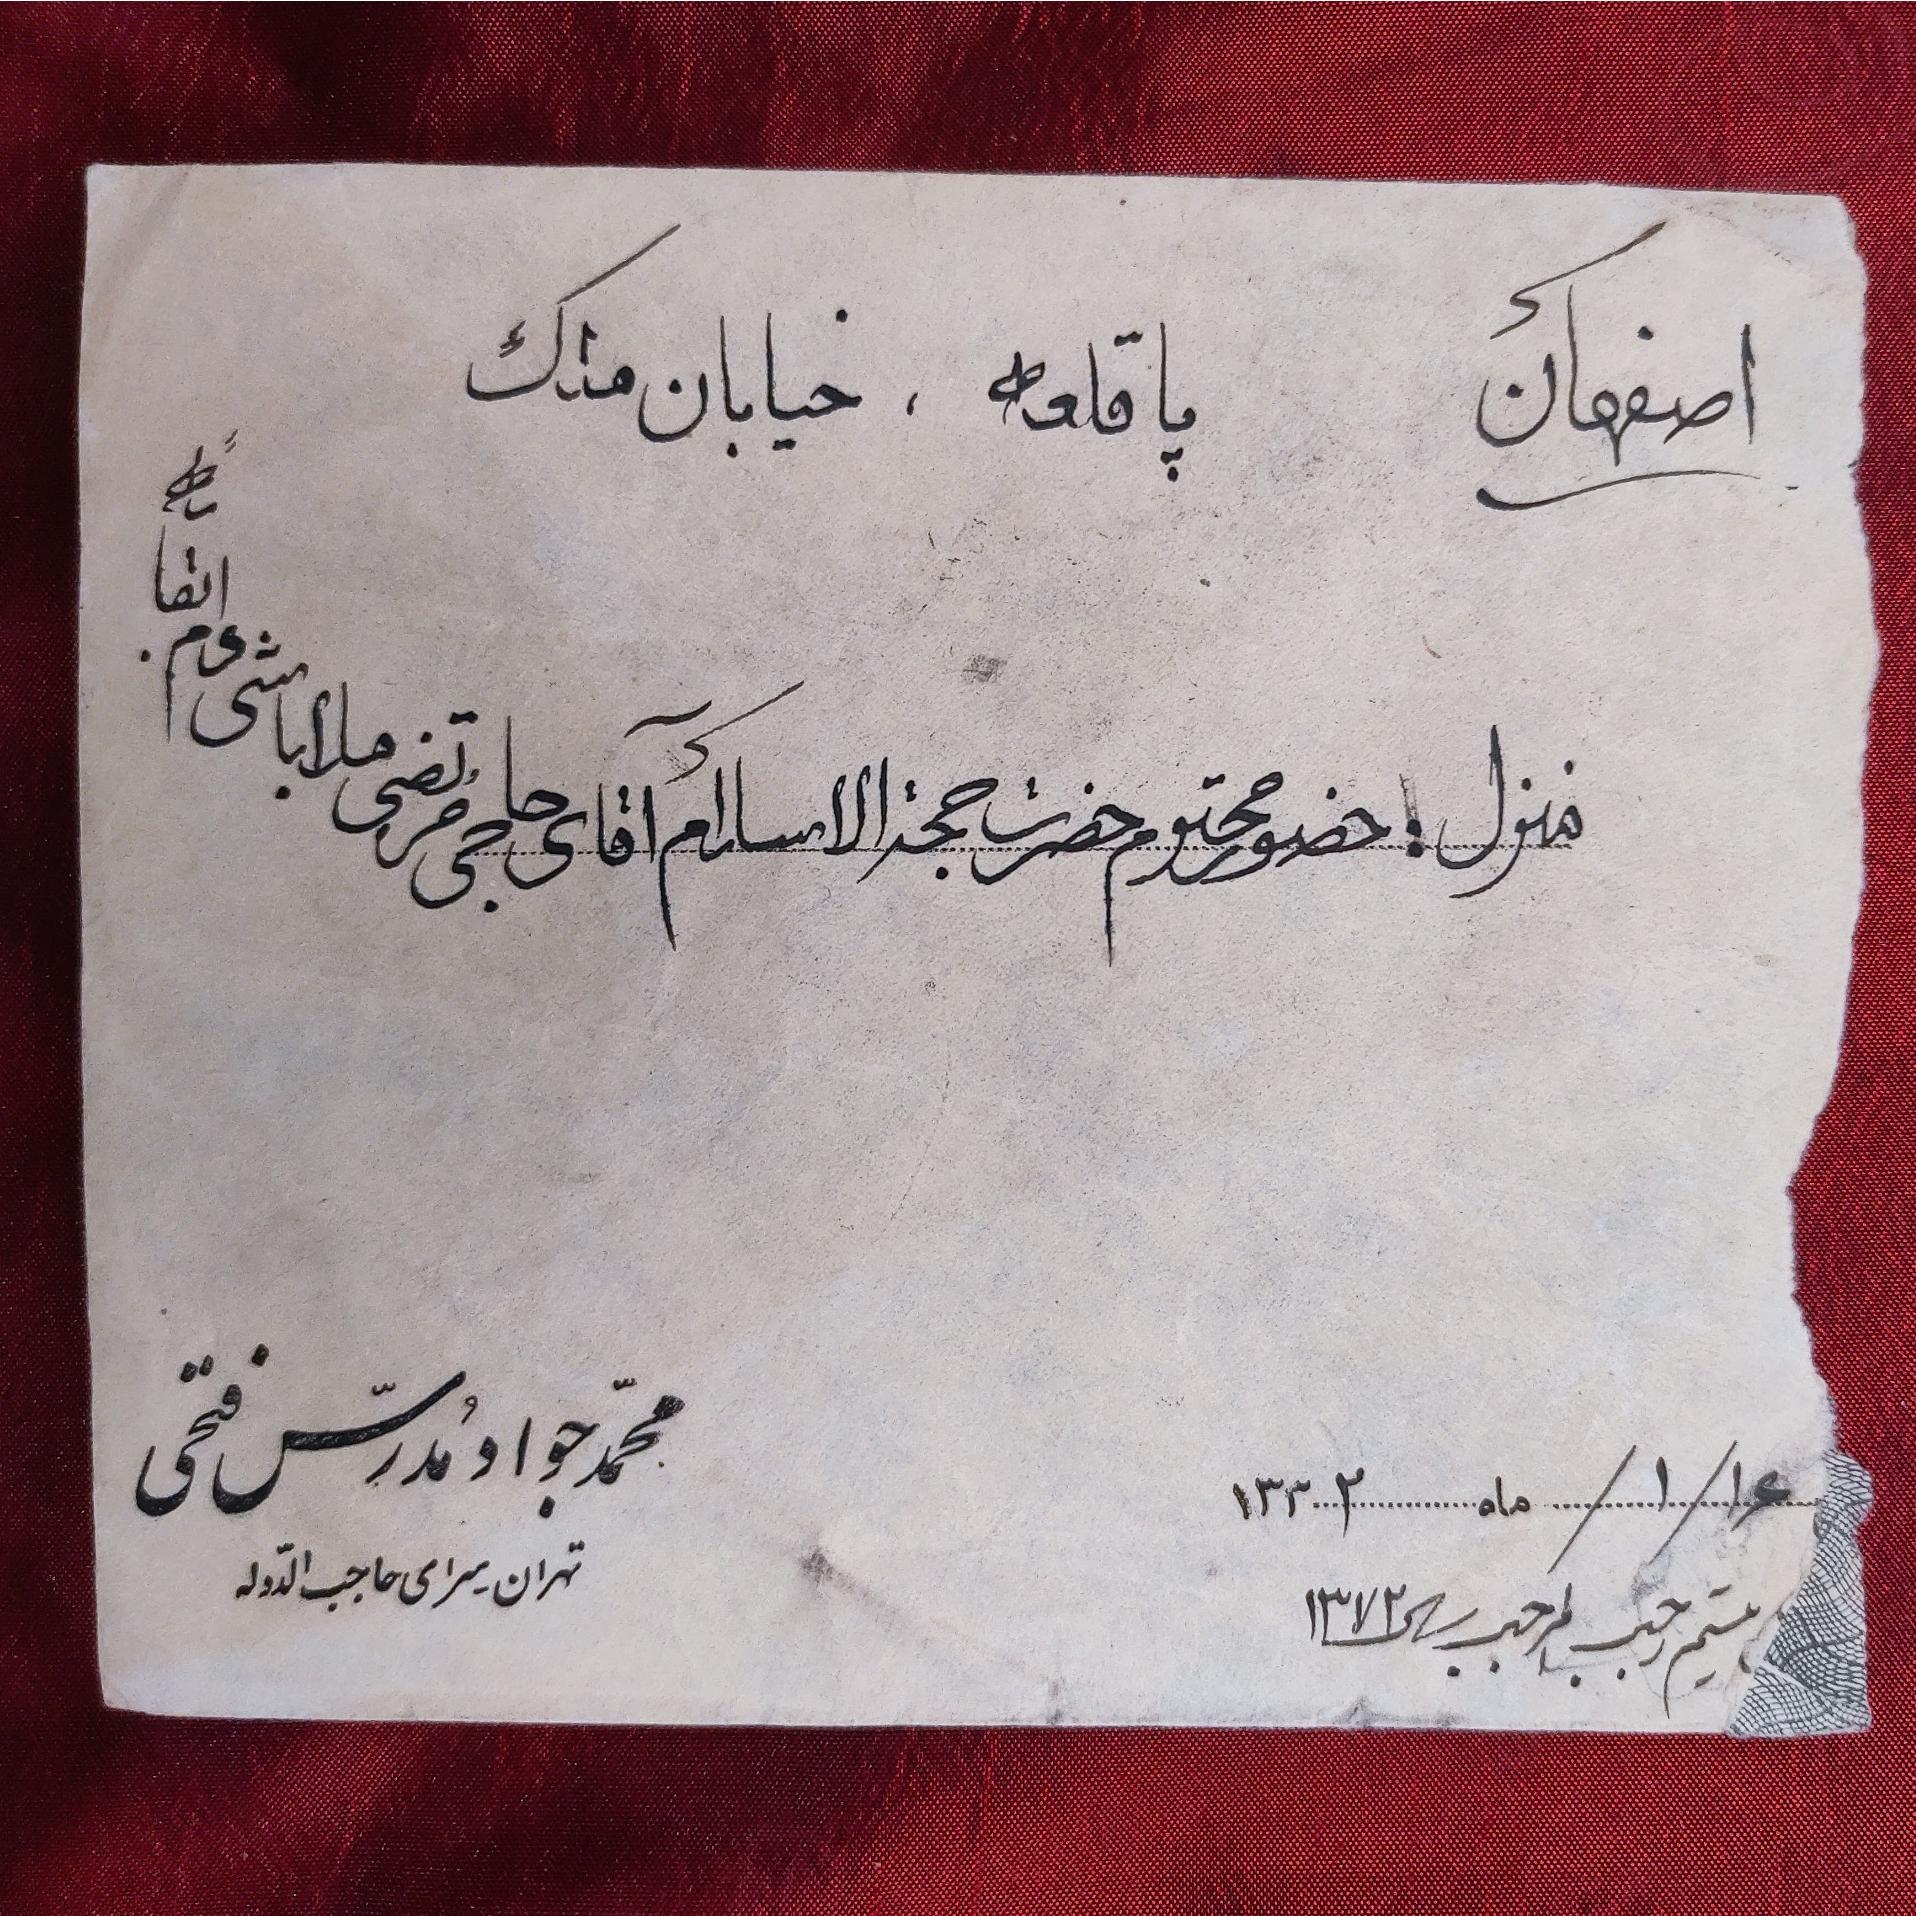 اصفهان پا قلعه ، خیابان ملک
منزل : حضور محترم حضرت حجة الاسلام آقای حاجی مرتضی ملاباشی دام
محمّد جواد مُدرّس فتحی
تهران سرای حاجب الدّوله
۱۶/۱/ ماه ۱۳۳۲
رجب المرجب ۱۳۷۲